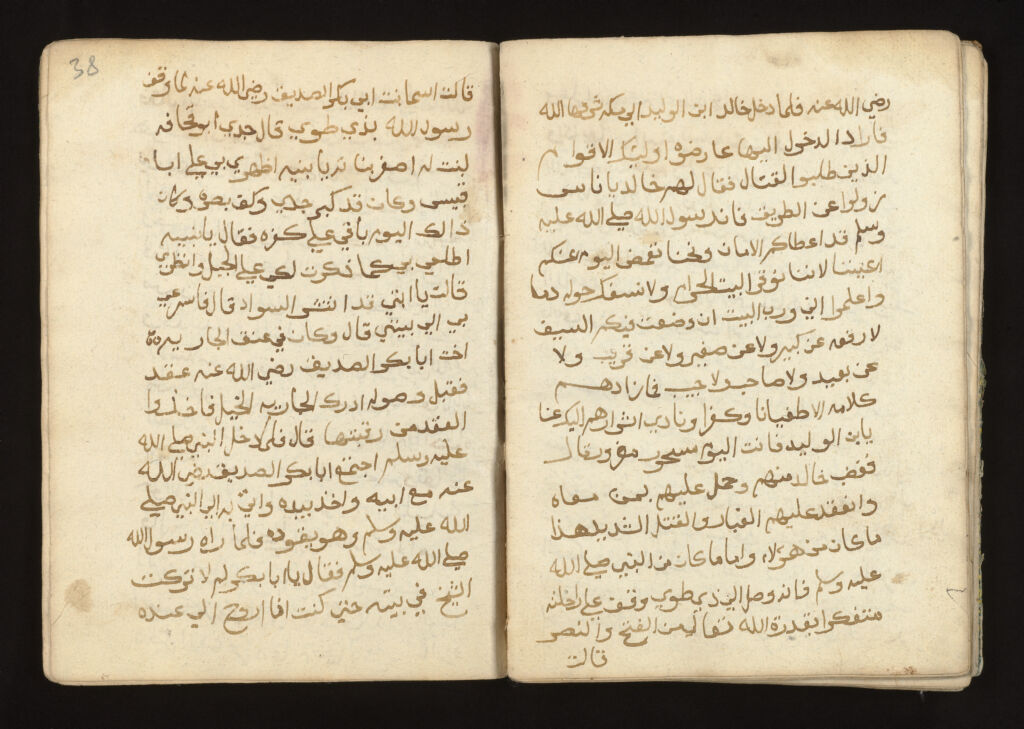 رضي الله عنه فلما دخل خالد ابن الوليد الي مكه شرفها الله
فاراد الدخول اليها عارضوه اوليك الاقوام
الذين طلبوا القتال فقال لهم خالد يا ناس
زولوا عن الطريق فان رسول الله صلي الله عليه
وسلم قد اعطاكم الامان ونحنا نغمض اليوم عنكم
اعيننا لاننا نوقي البيت الحرام ولا نسفك حوله دما
واعلموا اني ورب البيت ان وضعت فيكم السيف
لا رفعه عن كبير ولا عن صغير ولا عن قريب ولا
عن بعيد ولا صاحب ولا حبيب فما زادهم
كلامه الا طغيانا وكفرا ونادي اشرارهم اليك عنا
يابن الوليد فانت اليوم مسحور مغرور قال
فغضب خالد منهم وحمل عليهم بمن معاه
وانعقد عليهم الغبار والقتل الشديد هذا
ما كان من هولاء واما ما كان من النبي صلي الله
عليه وسلم فانه وصل الي ذي طوي وقف علي راحلته
متفكرا بقدرة الله تعالي من الفتح والنصر
قالت
38
قالت اسما بنت ابي بكر الصديق رضي الله عنه لما وقف
رسول الله بذي طوي قال جدي ابو قحافه
لبنت له اصغر بنا يا بنيه اظهري بي علي ابا
قبيس وكان قد كبر جدي وكف بصره وكان
ذالك اليوم باقي علي كفره فقال يا بنيه
اطلعي بي كما ذكرت لكي علي الجبل وانظري
قالت يا ابتي قد انتشي السواد قال فاسرعي
بي الي بيتي قال وكان في عنق الجاريه
اخت ابا بكر الصديق رضي الله عنه عقد
فقبل وصوله ادرك الجاريه الخيل فاخذوا
العقد من رقبتها قال فلما دخل النبي صلي الله
عليه وسلم اجتمع ابا بكر الصديق رضي الله
عنه مع ابيه واخذ بيده واتي به الي النبي صلي
الله عليه وسلم وهو يقوده فلما راه رسول الله
صلي الله عليه وسلم فقال يا ابا بكر لم لا تركت
الشيخ في بيته حتي كنت انا اروح الي عنده